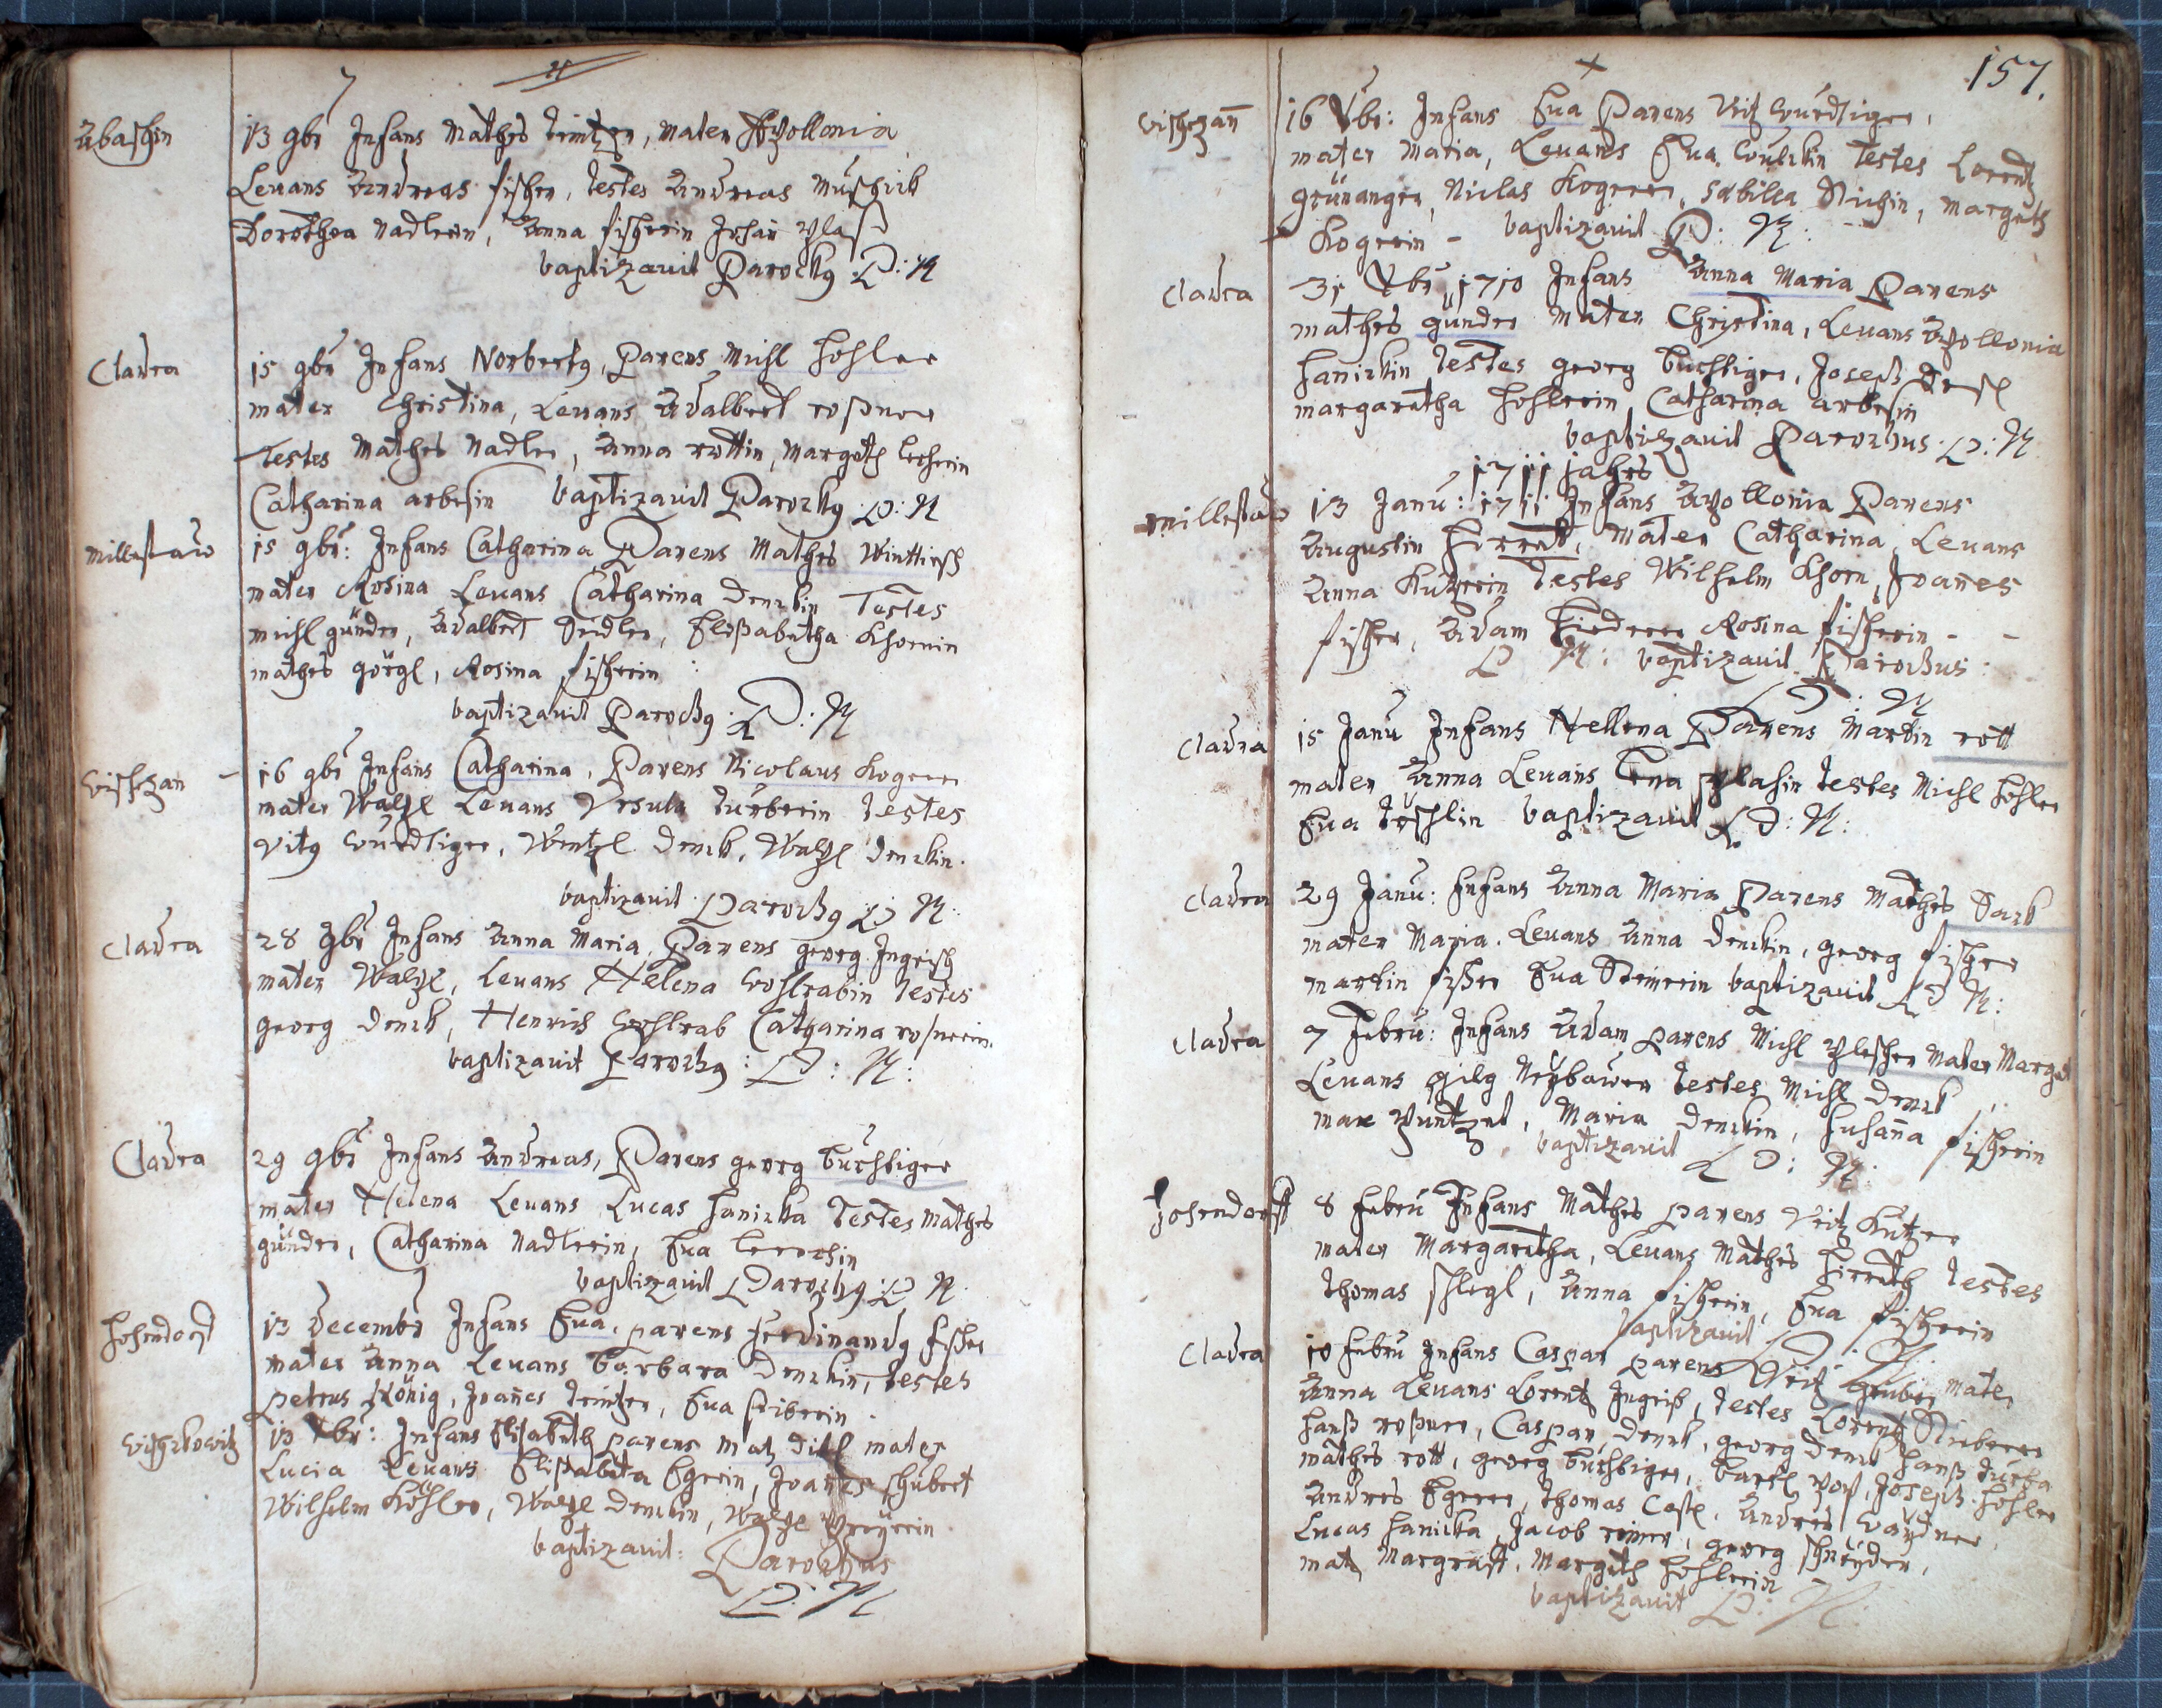 Abaschin 13 9br Infans Mathes Leintzer, Mater Apollonia
Levans Andreas fischer, Testes Andreas Muschik
Dorothea Nadlerin, Anna fischerin Johan Plass
baptizavit Parochus P: N
Cladra 15 9br Infans Norbertus, Parens Michl Hohler
mater Christina, Levans Adalbert roßner
Testes Mathes Nadler, Anna rottin, Margeth
Catharina arbesin baptizavit Parochus P: N
Millestaw 15 9br: Infans Catharina Parens Mathes Winttirsch
mater Rosina Levans Catharina Denckin Testes
michl günder, Adalbert Sidler, Elisabetha Khornin
mathes görgl, Rosina fischerin
baptizavit Parochus P: N
Wischezan 16 9br Infans Catharina, Parens Nicolaus Kogerer
mater Waltzl Levans Ursula Türberin Testes
Vitus Wurdtiger, Wentzl Denck, Waltzl Denckin
baptizavit Parochus P N
Cladra 28 9br Infans Anna Maria, Parens georg Ingrisch
mater Waltzl, Levans Helena Wohlrabin Testes
georg Denck, Henrich Wohlrab Catharina roßnerin
baptizavit Parochus: P: N:
Cladra 29 9br Infans Andreas, Parens georg Buchtiger
mater Helena Levans Lucas Hanicka Testes Mathes
günder, Catharina Nadlerin, Eua
baptizavit Parochus P N
Hohendorf 13 Decembr Infans Eua, parens Ferdinandus fischer
mater Anna Levans Barbara Denckin, Testes
petrus König, Joannes Leintzer, Eua
Wischkowitz 10br: Infans Elisabeth parens Matz Ditl mater
Lucia Levans Elisabeta Egerin, Joannes Schubert
Wilhelm Köhler, Waltzl Denckin, Waltzl
baptizavit: Parochus
P. N
157.
Wischezan 16 Xbr: Infans Eua Parens Veit Wurdtiger,
mater Maria, Levans Eua Testes Lorentz
grünanger, Niclas Kogerer, Sabilla Margeth
Kogerin - baptizavit P: N:
Cladra 31 Xbr 1710 Infans Anna Maria Parens
mathes günder Mater Christina, Levans Apollonia
Hanickin Testes georg Buchtiger, Joseph
margaretha Hohlerin, Catharina arbesin
baptizavit Parochus P: N
1711 Jahrs
Millestaw 13 Janu: 1711 Infans Apollonia Parens
Augustin, Mater Catharina, Levans
Anna Kutzerin Testes Wilhelm Khorn, Joannes
fischer, Adam Rosina fischerin
P N: baptizavit Parochus:
P: N
Cladra 15 Janu Infans Hellena Parens Martin rott
mater Anna Levans Plasin Testes Michl Hohler
Eua Töschlin baptizavit P: N:
Cladra 29 Janu: Infans Anna Maria Parens Mathes Sack
mater Maria. Levans Anna Denckin, georg fischer
martin fischer Eua Steinerin baptizavit P N:
Cladra 7 Febru: Infans Adam parens Michl Plescher Mater Marget
Levans gilg Neybawer Testes Michl Denck
max Puntzel, Maria Denckin, Susanna fischerin
baptizavit P: N:
Hohendorff 8 Febru Infans Mathes parens Veitz Kutzer
mater Margaretha, Levans Mathes Testes
Thomas schlegl, Anna fischerin, Eua fischerin
baptizavit P. N.
Cladra 10 Febru Infans Caspar parens Veit gruber mater
Anna Levans Lorentz Ingriß, Testes Lorentz
Hanß roßner, Caspar Denck, georg Denck Hanß Turba
mathes rott, georg Buchtiger, Bartl Joseph Hohler
Andres Egerer, Thomas Andres Waydner
Lucas Hanicka, Jacob reiner, georg schneyder,
matz Margraff, Margeth Hohlerin
baptizavit P: N.